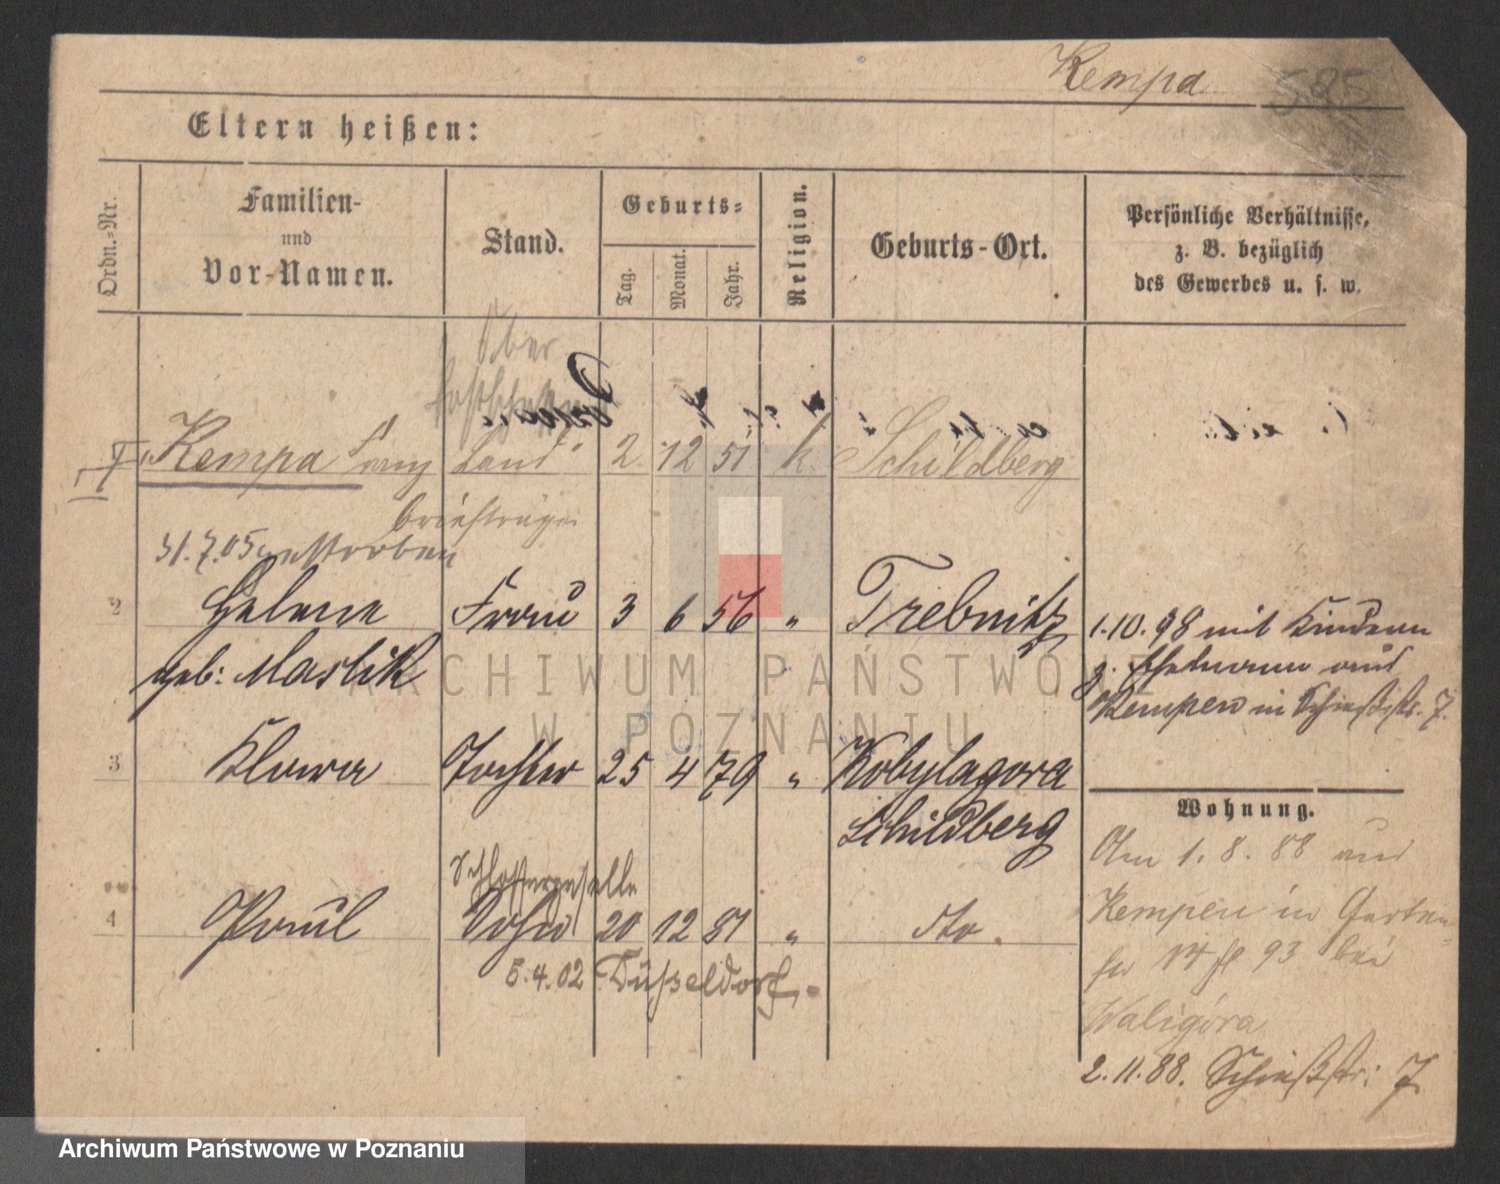 Kempa 595
Eltern heißen:
Ordn.-Nr.
Familien-
und
Vor-Namen.
Stand.
Geburts-
Tag.
Monat.
Jahr.
Religion.
Geburts-Ort.
Persönliche Verhältnisse,
z. B. bezüglich
des Gewerbes u. s. w.
Ober
Kempa Franz Land 2 12 51 k. Schildberg
briefträger
31.7.05 gestorben
2 Helene Frau 3 6 56 " Trebnitz
geb: Maslik
1.10.98 mit Kindern
z. Ehemann aus
Kempen in Schießstr. 7.
3 Klara Tochter 25 4 79 " Kobylagora
Schildberg
Wohnung.
Am 1. 8. 88 aus
Kempen in Garten-
14 93 bei
Waligóra
2. 11. 88. Schießstr: 7
Schlossergeselle
4 Paul Sohn 20 12 81 " dto.
5.4.02 Düsseldorf.
ARCHIWUM PAŃSTWOWE
W POZNANIU
Archiwum Państwowe w Poznaniu